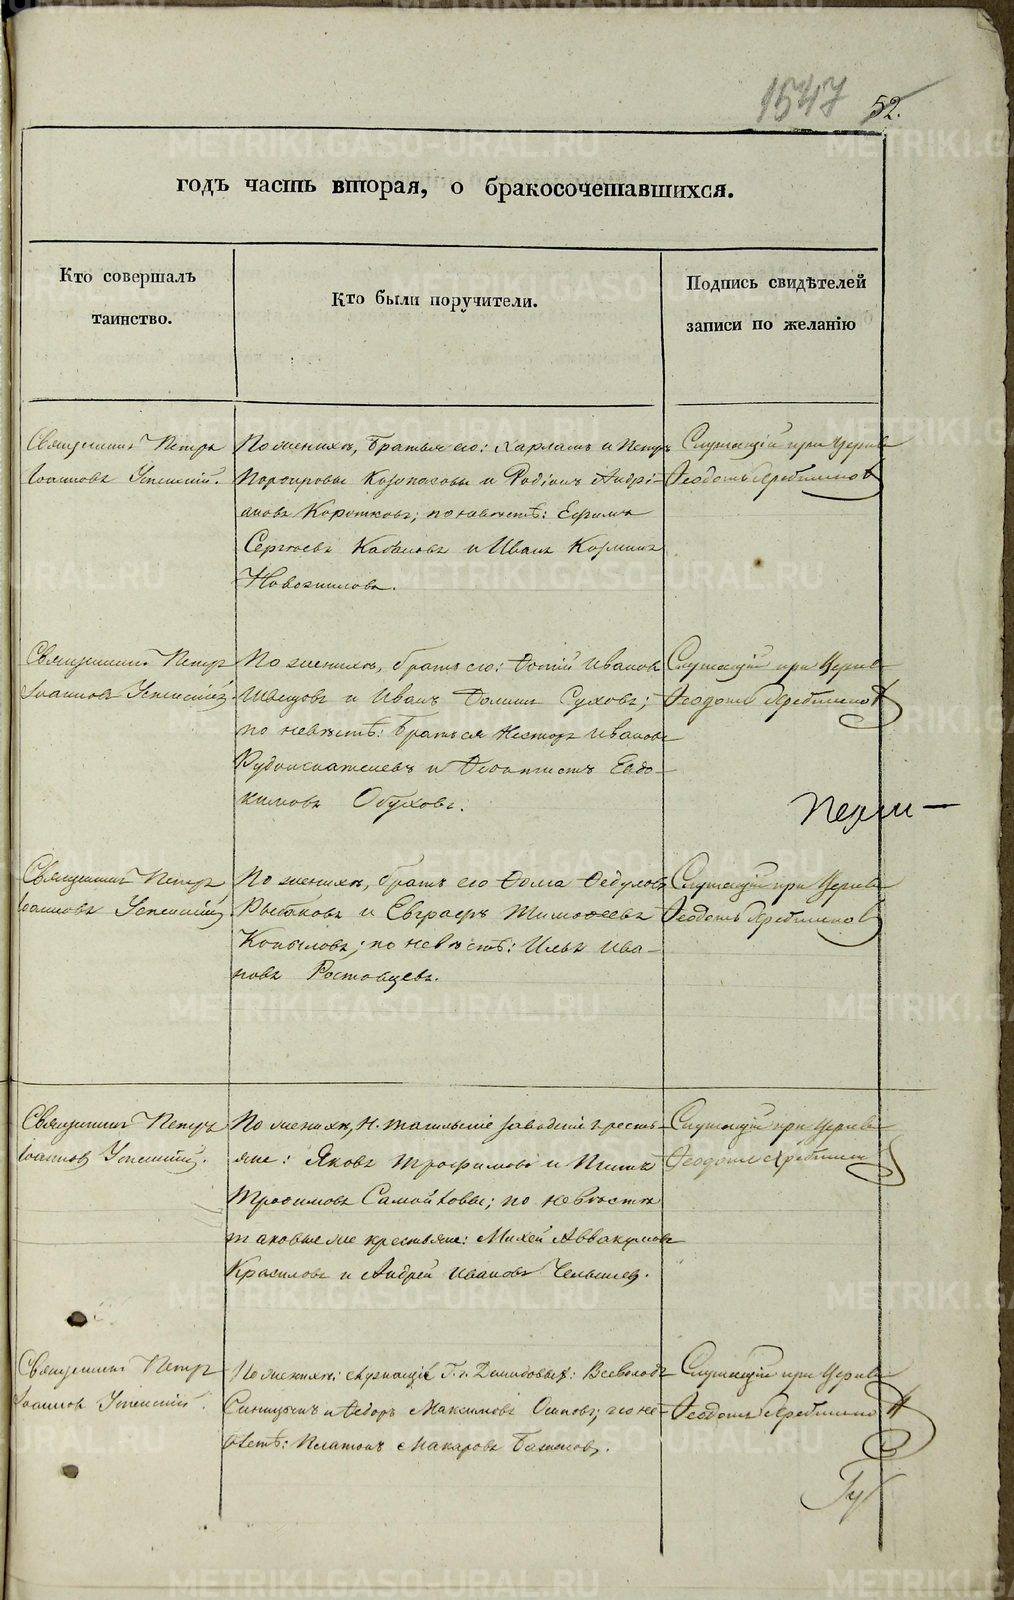 1547 52.
годъ часть вторая, о бракосочетавшихся.
Кто совершалъ
таинство.
Кто были поручители.
Подпись свидѣтелей
записи по желанію
Священникъ Петръ
Іоанновъ Успенскій.
По женихѣ, братья его: Харламъ и Петръ
и Родіонъ Андрі-
ановъ Коротковъ; по невѣстѣ: Ефимъ
Сергѣевъ Кабановъ и Иванъ Козминъ
Служащій при Церкви
Ѳеодотъ
Священникъ Петръ
Іоанновъ Успенскій
По женихѣ, братъ его: Фотій Ивановъ
Швецовъ и Иванъ Ѳоминъ Суховъ;
по невѣстѣ: братья Несторъ Ивановъ
и Ѳеоктистъ Евдо-
кимовъ Обуховъ.
Служащій при Церкви
Ѳеодотъ
Перм—
Священникъ Петръ
Іоанновъ Успенскій
По женихѣ, братъ его Ѳома Ѳедуловъ
Рыбаковъ и Евграфъ Тимоѳеевъ
Копыловъ; по невѣстѣ: Илья Ива-
новъ Ростовцевъ.
Служащій при Церкви
Ѳеодотъ
Священникъ Петръ
Іоанновъ Успенскій.
По женихѣ, Н. Тагильскіе заводскіе кресть-
яне: Яковъ Трофимовъ и
Трофимовъ Самойловы; по невѣстѣ
таковые же крестьяне: Михей Аввакумовъ
Красиловъ и Андрей Ивановъ
Служащій при Церкви
Ѳеодотъ
Священникъ Петръ
Іоанновъ Успенскій.
По женихѣ: служащіе Г.г. Демидовыхъ: Всеволодъ
Синицынъ и Ѳедоръ Максимовъ Осиповъ; по не-
вѣстѣ: Платонъ Макаровъ
Служащій при Церкви
Ѳеодотъ
Губ
METRIKI.GASO-URAL.RU